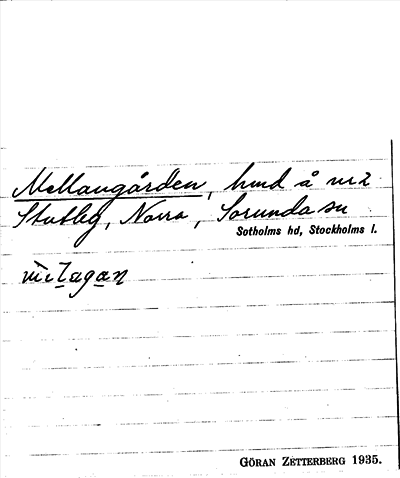 Mellangården, hmd å nr 2
Stutby, Norra, Sorunda sn
Sotholms hd, Stockholms l.
GÖRAN ZETTERBERG 1935.